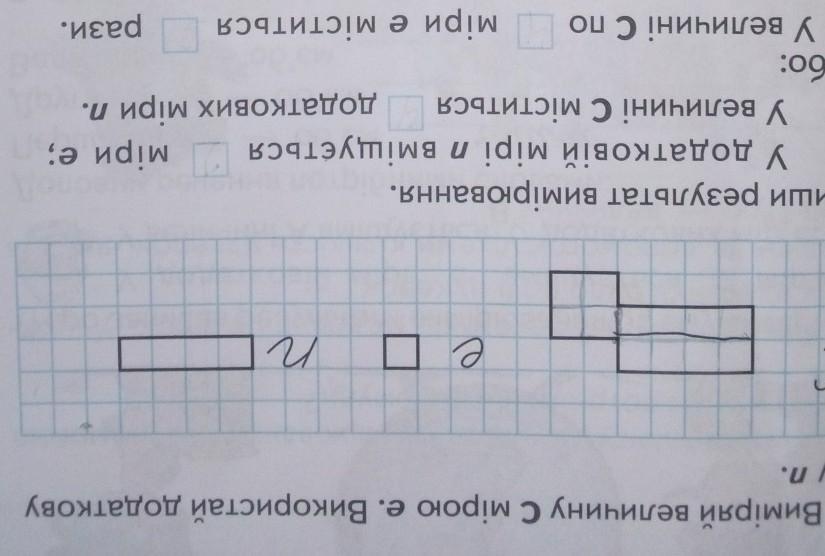 Виміряй величину С мірою е. Використай додаткову
у п.
е п
пиши результат вимірювання.
У додатковій мірі п вміщується міри е;
У величині С міститься додаткових міри п.
бо:
У величині С по міри е міститься рази.